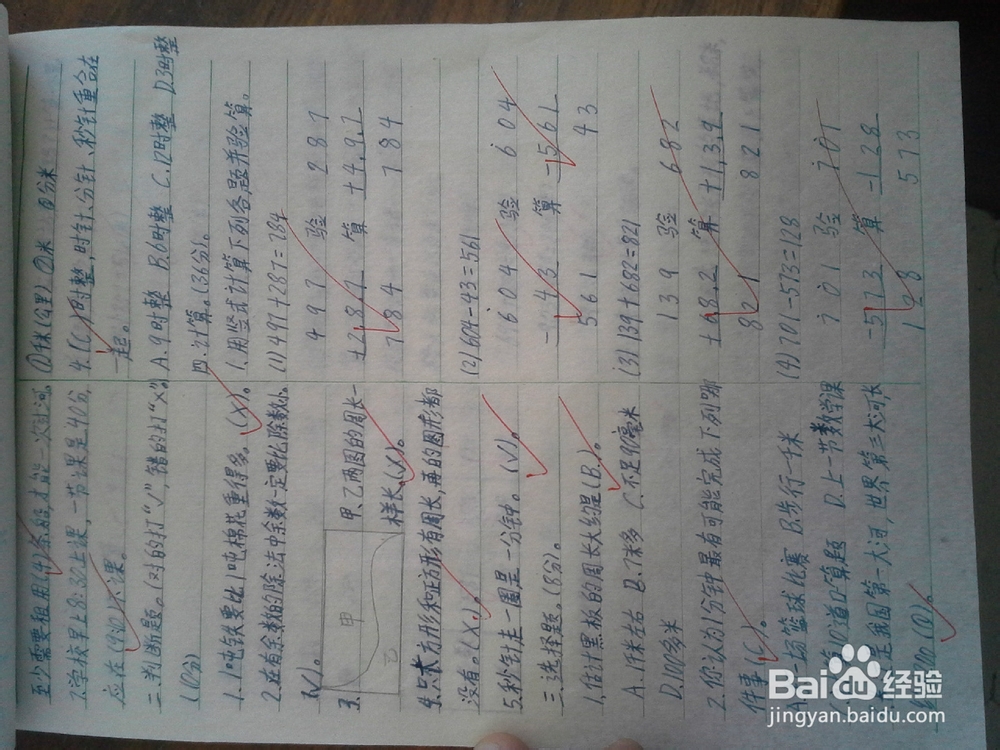 至少需要租用(4)条船,才能一次过河。
7.学校早上8:30上课,一节课是40分,
应在(9:10)下课。
二.判断题。(对的打“√”,错的打“×”。
(10分)
1.1吨铁要比1吨棉花重得多。(×)。
2.在有余数的除法中余数一定要比除数小。
(√)。
3.
甲
乙
甲、乙两图的周长一
样长。(×)。
4.只有长方形和正方形有周长,再的图形都
没有。(×)。
5.秒针走一圈是一分钟。(√)。
三.选择题。(8分)。
1.估计黑板的周长大约是(B.)。
A.1千米左右 B.7米多 C.不足90毫米
D.100多米
2.你认为1分钟最有可能完成下列哪
件事(C)。
A.一场篮球比赛 B.步行一千米
C.算10道口算题 D.上一节数学课
是我国第一大河,世界第三大河,长
6300(①)。
①千米(公里) ②米 ③分米
4.(C)时整,时针、分针、秒针重合在
一起。
A.9时整 B.6时整 C.12时整 D.3时整
四.计算。(36分)。
1.用竖式计算下列各题并验算。
(1)497+287=784
497 验 287
+287 算 +497
784 784
(2)604-43=561
604 验 604
-43 算 -561
561 43
(3)139+682=821
139 验 682
+682 算 +139
821 821
(4)701-573=128
701 验 701
-573 算 -128
128 573
Baidu经验
jingyan.baidu.com